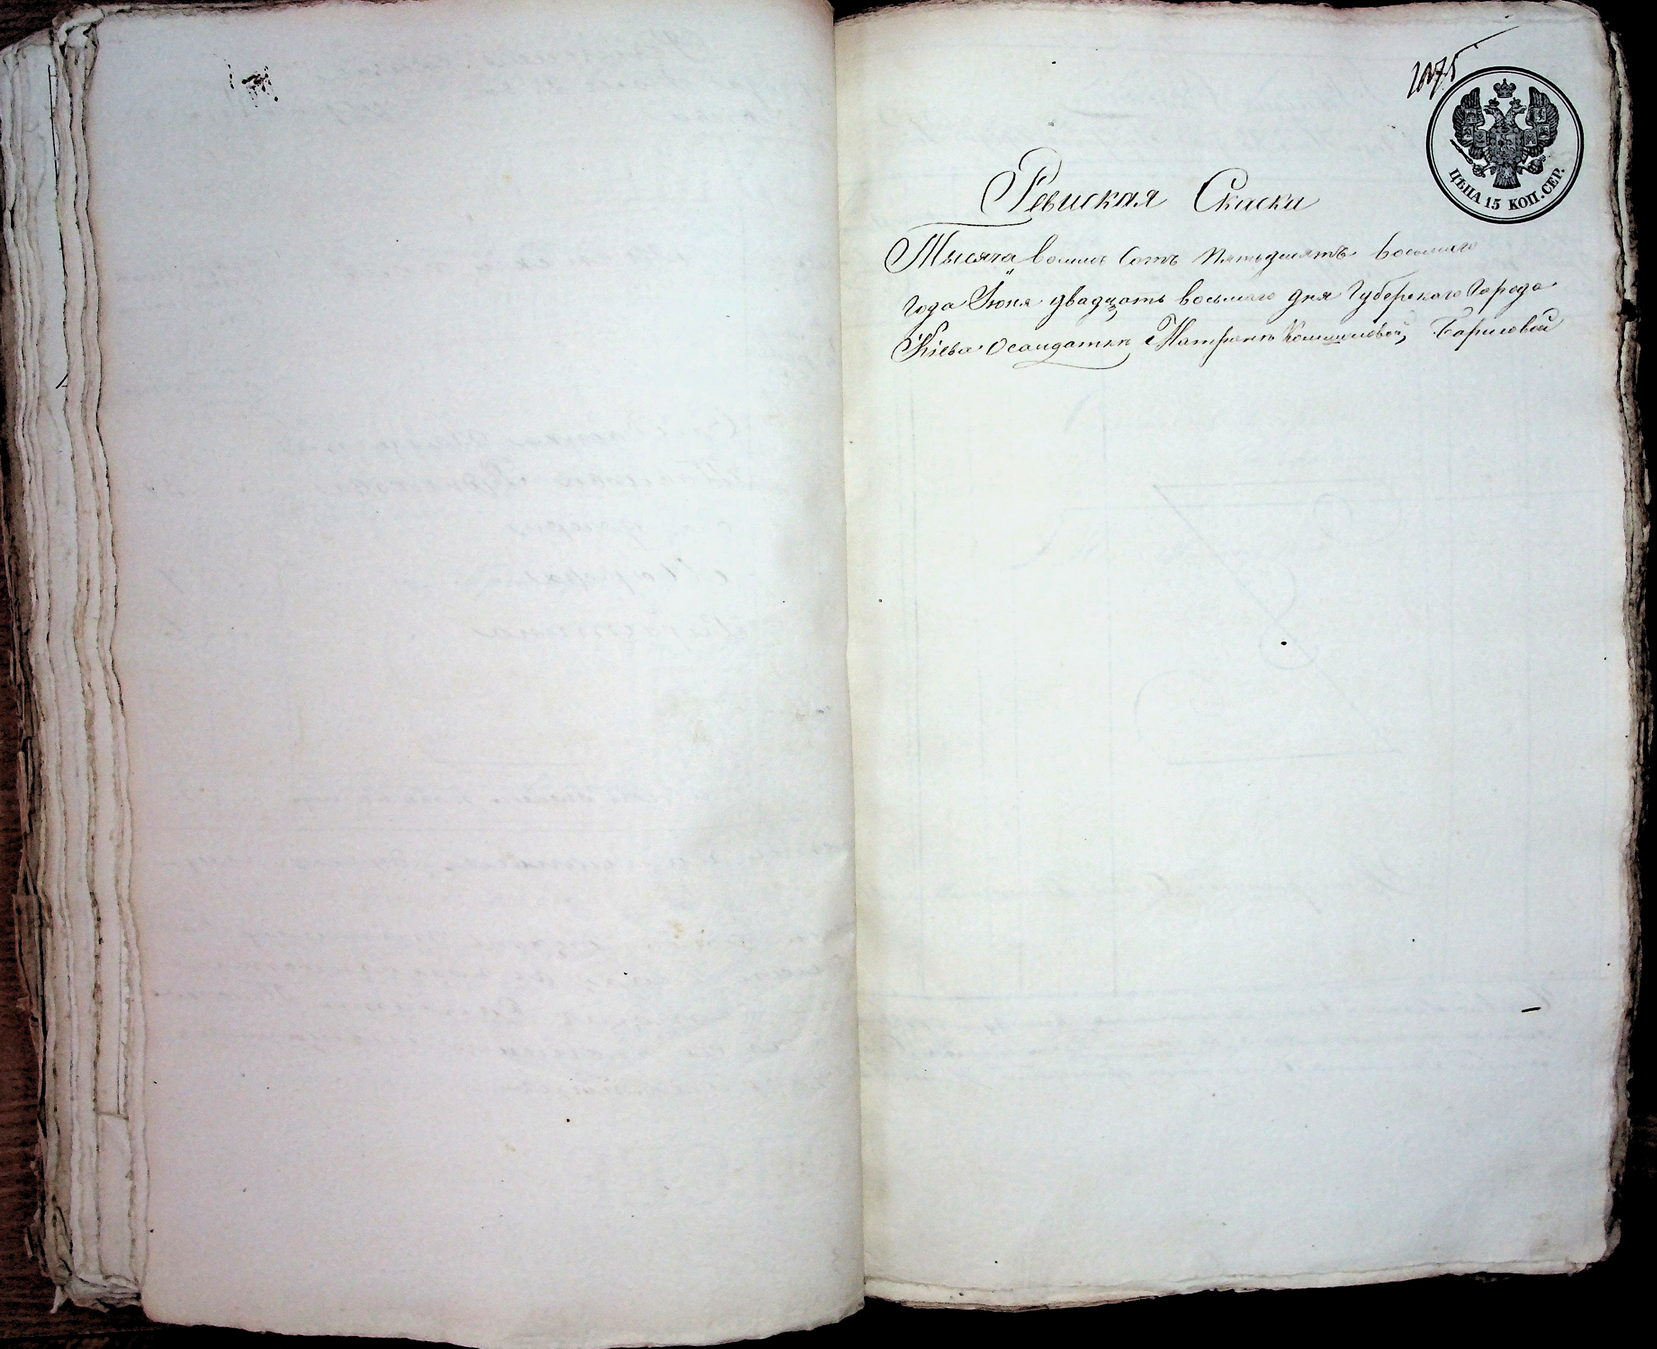 1075
ЦѢНА 15 КОП. СЕР.
Ревиская Скаски
Тысяча восмисотъ пятьдисятъ восьмаго
Года Іюня двадцать восьмаго дня Губерскаго Города
Кіева о салдаткѣ Матронѣ Бариловой